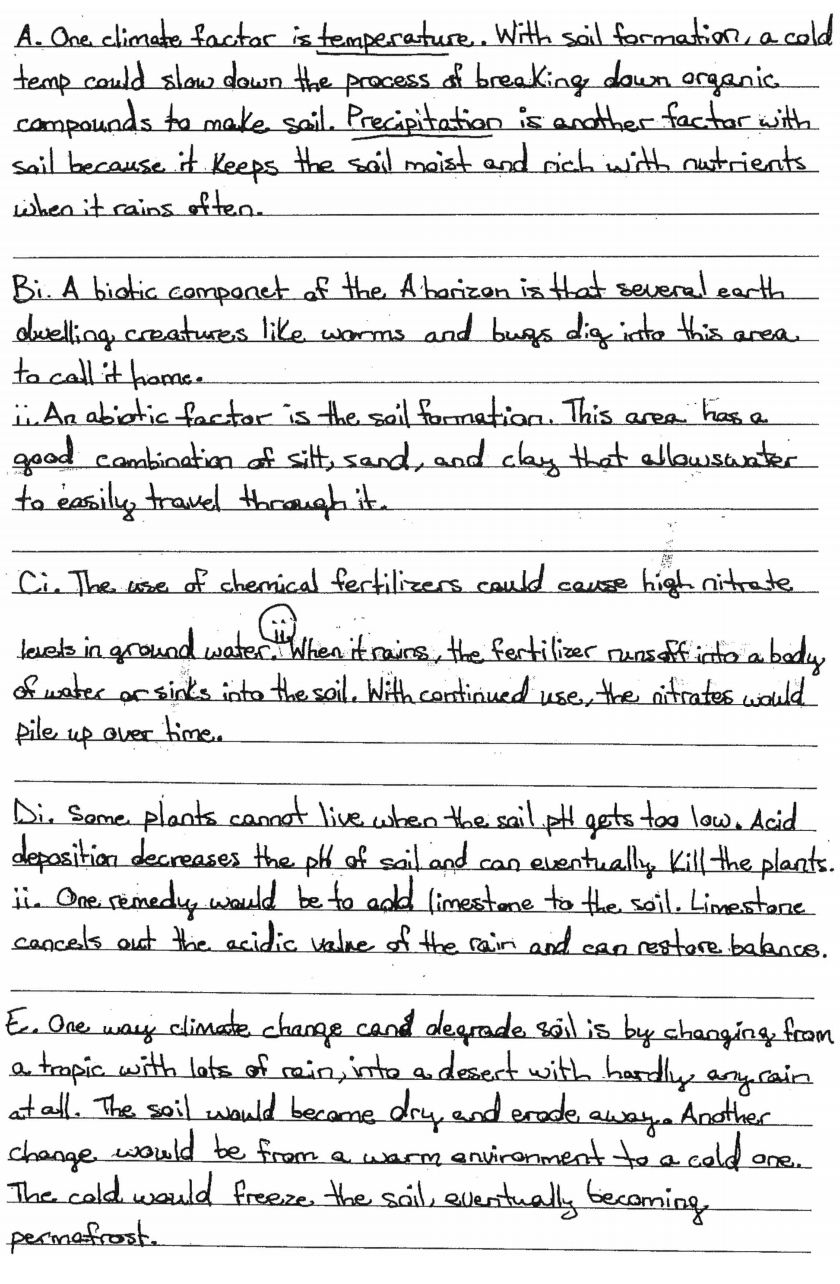 A. One climate factor is temperature. With soil formation, a cold
temp could slow down the process of breaking down organic
compounds to make soil. Precipitation is another factor with
soil because it keeps the soil moist and rich with nutrients
when it rains often.
Bi. A biotic componet of the A horizon is that several earth
dwelling creatures like worms and bugs dig into this area
to call it home.
ii. An abiotic factor is the soil formation. This area has a
good combination of silt, sand, and clay that allows water
to easily travel through it.
Ci. The use of chemical fertilizers could cause high nitrate
levels in ground water. ii When it rains, the fertilizer runs off into a body
of water or sinks into the soil. With continued use, the nitrates would
pile up over time.
Di. Some plants cannot live when the soil pH gets too low. Acid
deposition decreases the pH of soil and can eventually kill the plants.
ii. One remedy would be to add limestone to the soil. Limestone
cancels out the acidic value of the rain and can restore balance.
E. One way climate change cand degrade soil is by changing from
a tropic with lots of rain, into a desert with hardly any rain
at all. The soil would become dry and erode away. Another
change would be from a warm environment to a cold one.
The cold would freeze the soil, eventually becoming
permafrost.